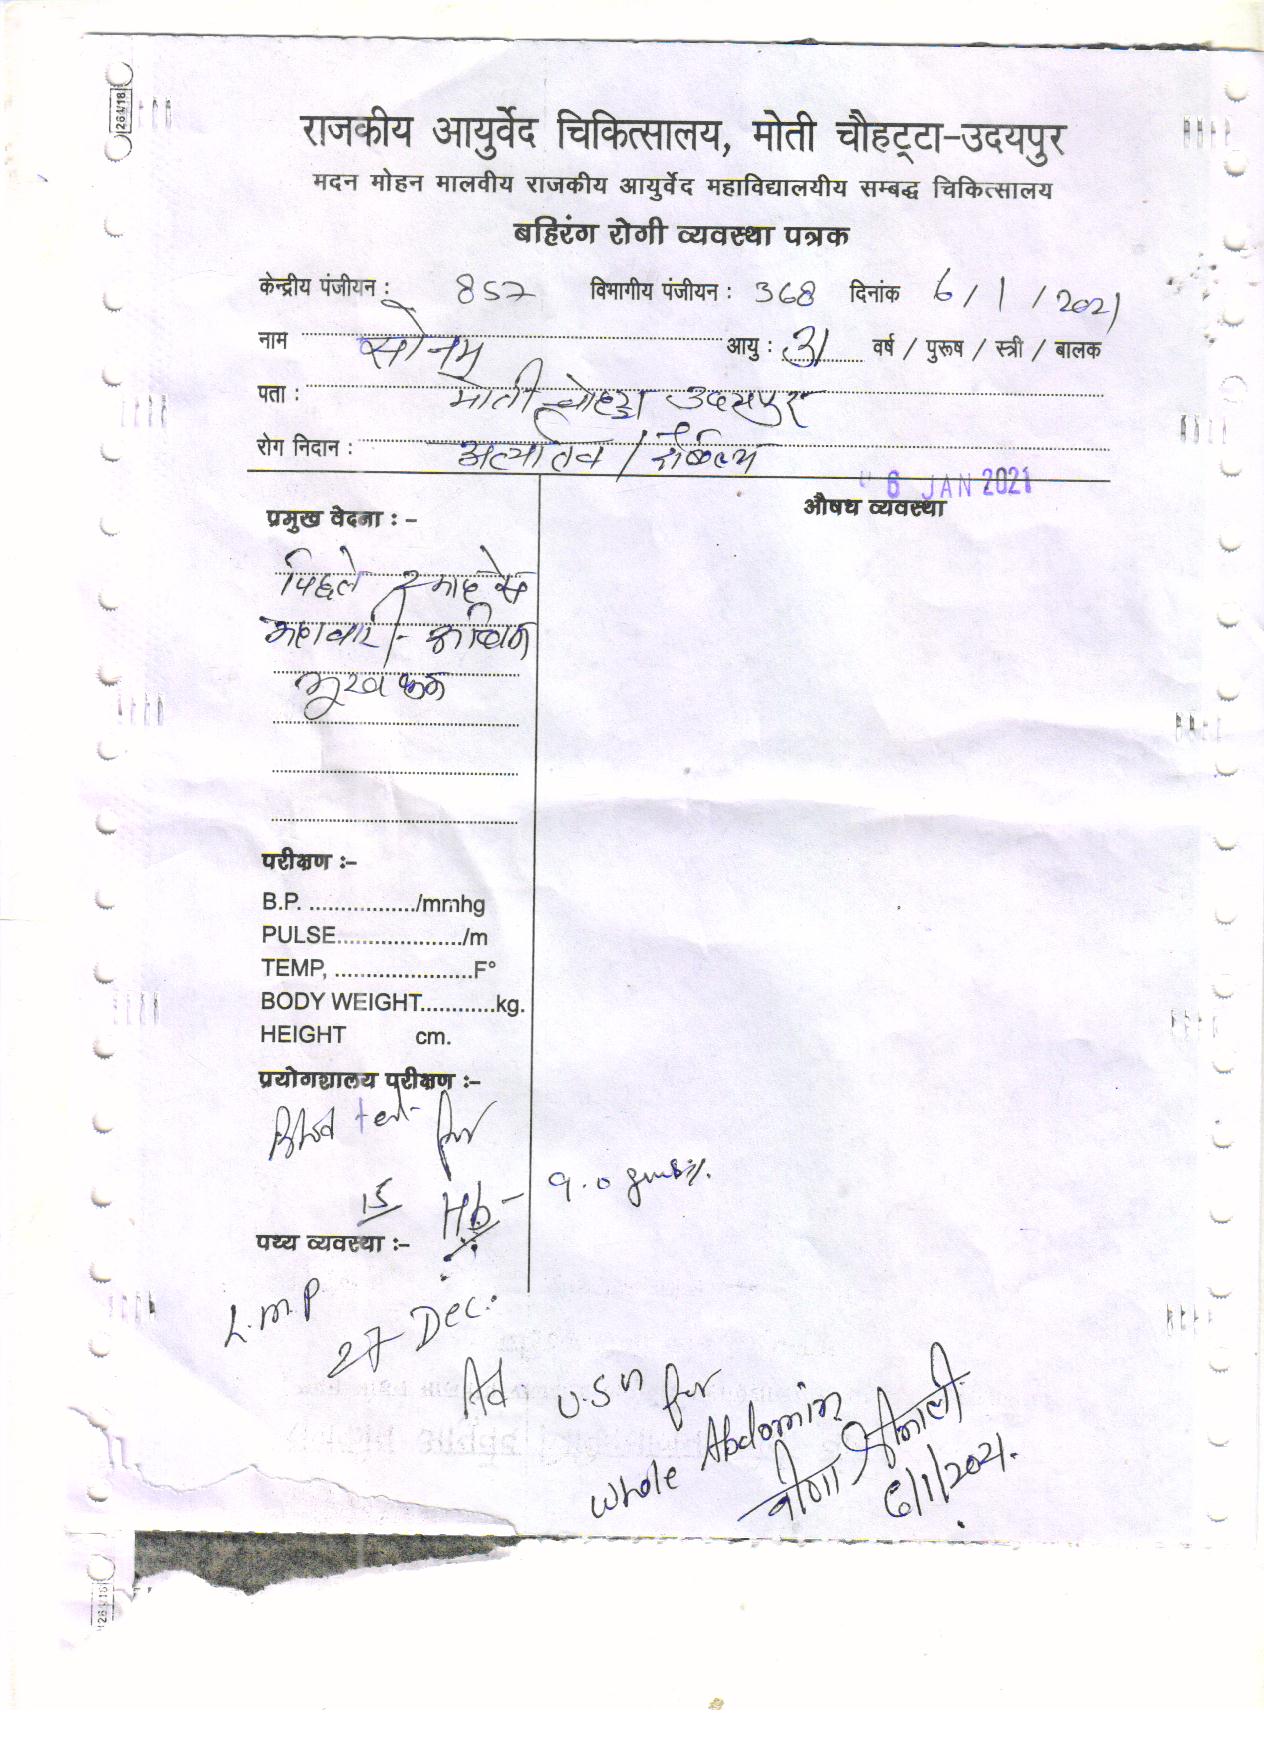 26ः/18
राजकीय आयुर्वेद चिकित्सालय, मोती चौहट्टा-उदयपुर
मदन मोहन मालवीय राजकीय आयुर्वेद महाविद्यालयीय सम्बद्ध चिकित्सालय
बहिरंग रोगी व्यवस्था पत्रक
केन्द्रीय पंजीयन : 857 विभागीय पंजीयन : 368 दिनांक 6/1/2021
नाम सोनम आयु : 31 वर्ष / पुरूष / स्त्री / बालक
पता : मोती चोहट्टा उदयपुर
रोग निदान : अत्यार्तव / दौर्बल्य
06 JAN 2021
प्रमुख वेदना : - औषध व्यवस्था
पिछले 2 माह से
माहवारी - अधिक
भूख कम
परीक्षण :-
B.P. ................./mmhg
PULSE..................../m
TEMP, ......................F°
BODY WEIGHT............kg.
HEIGHT cm.
प्रयोगशालय परीक्षण :-
Blood test for
Hb - 9.0 gms%.
पथ्य व्यवस्था :-
L.M.P
27 Dec.
Ad U.S.G for
whole Abdomin
6/1/2021.